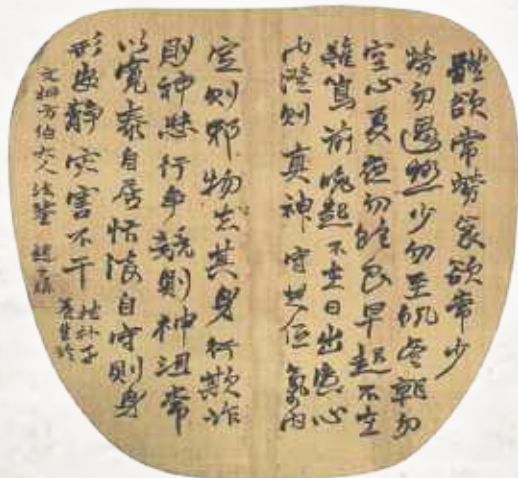 體欲常勞食欲常少
勞勿過極少勿至飢冬朝勿
空心夏夜勿飽食早起不在
雞鳴前晚起不在日出後心
內澄則真神守其位氣內
定則邪物去其身行欺詐
則神悲行爭競則神沮常
以寬泰自居恬淡自守則身
形安靜災害不干
抱朴子
養生論
方伯大人法鑒 趙